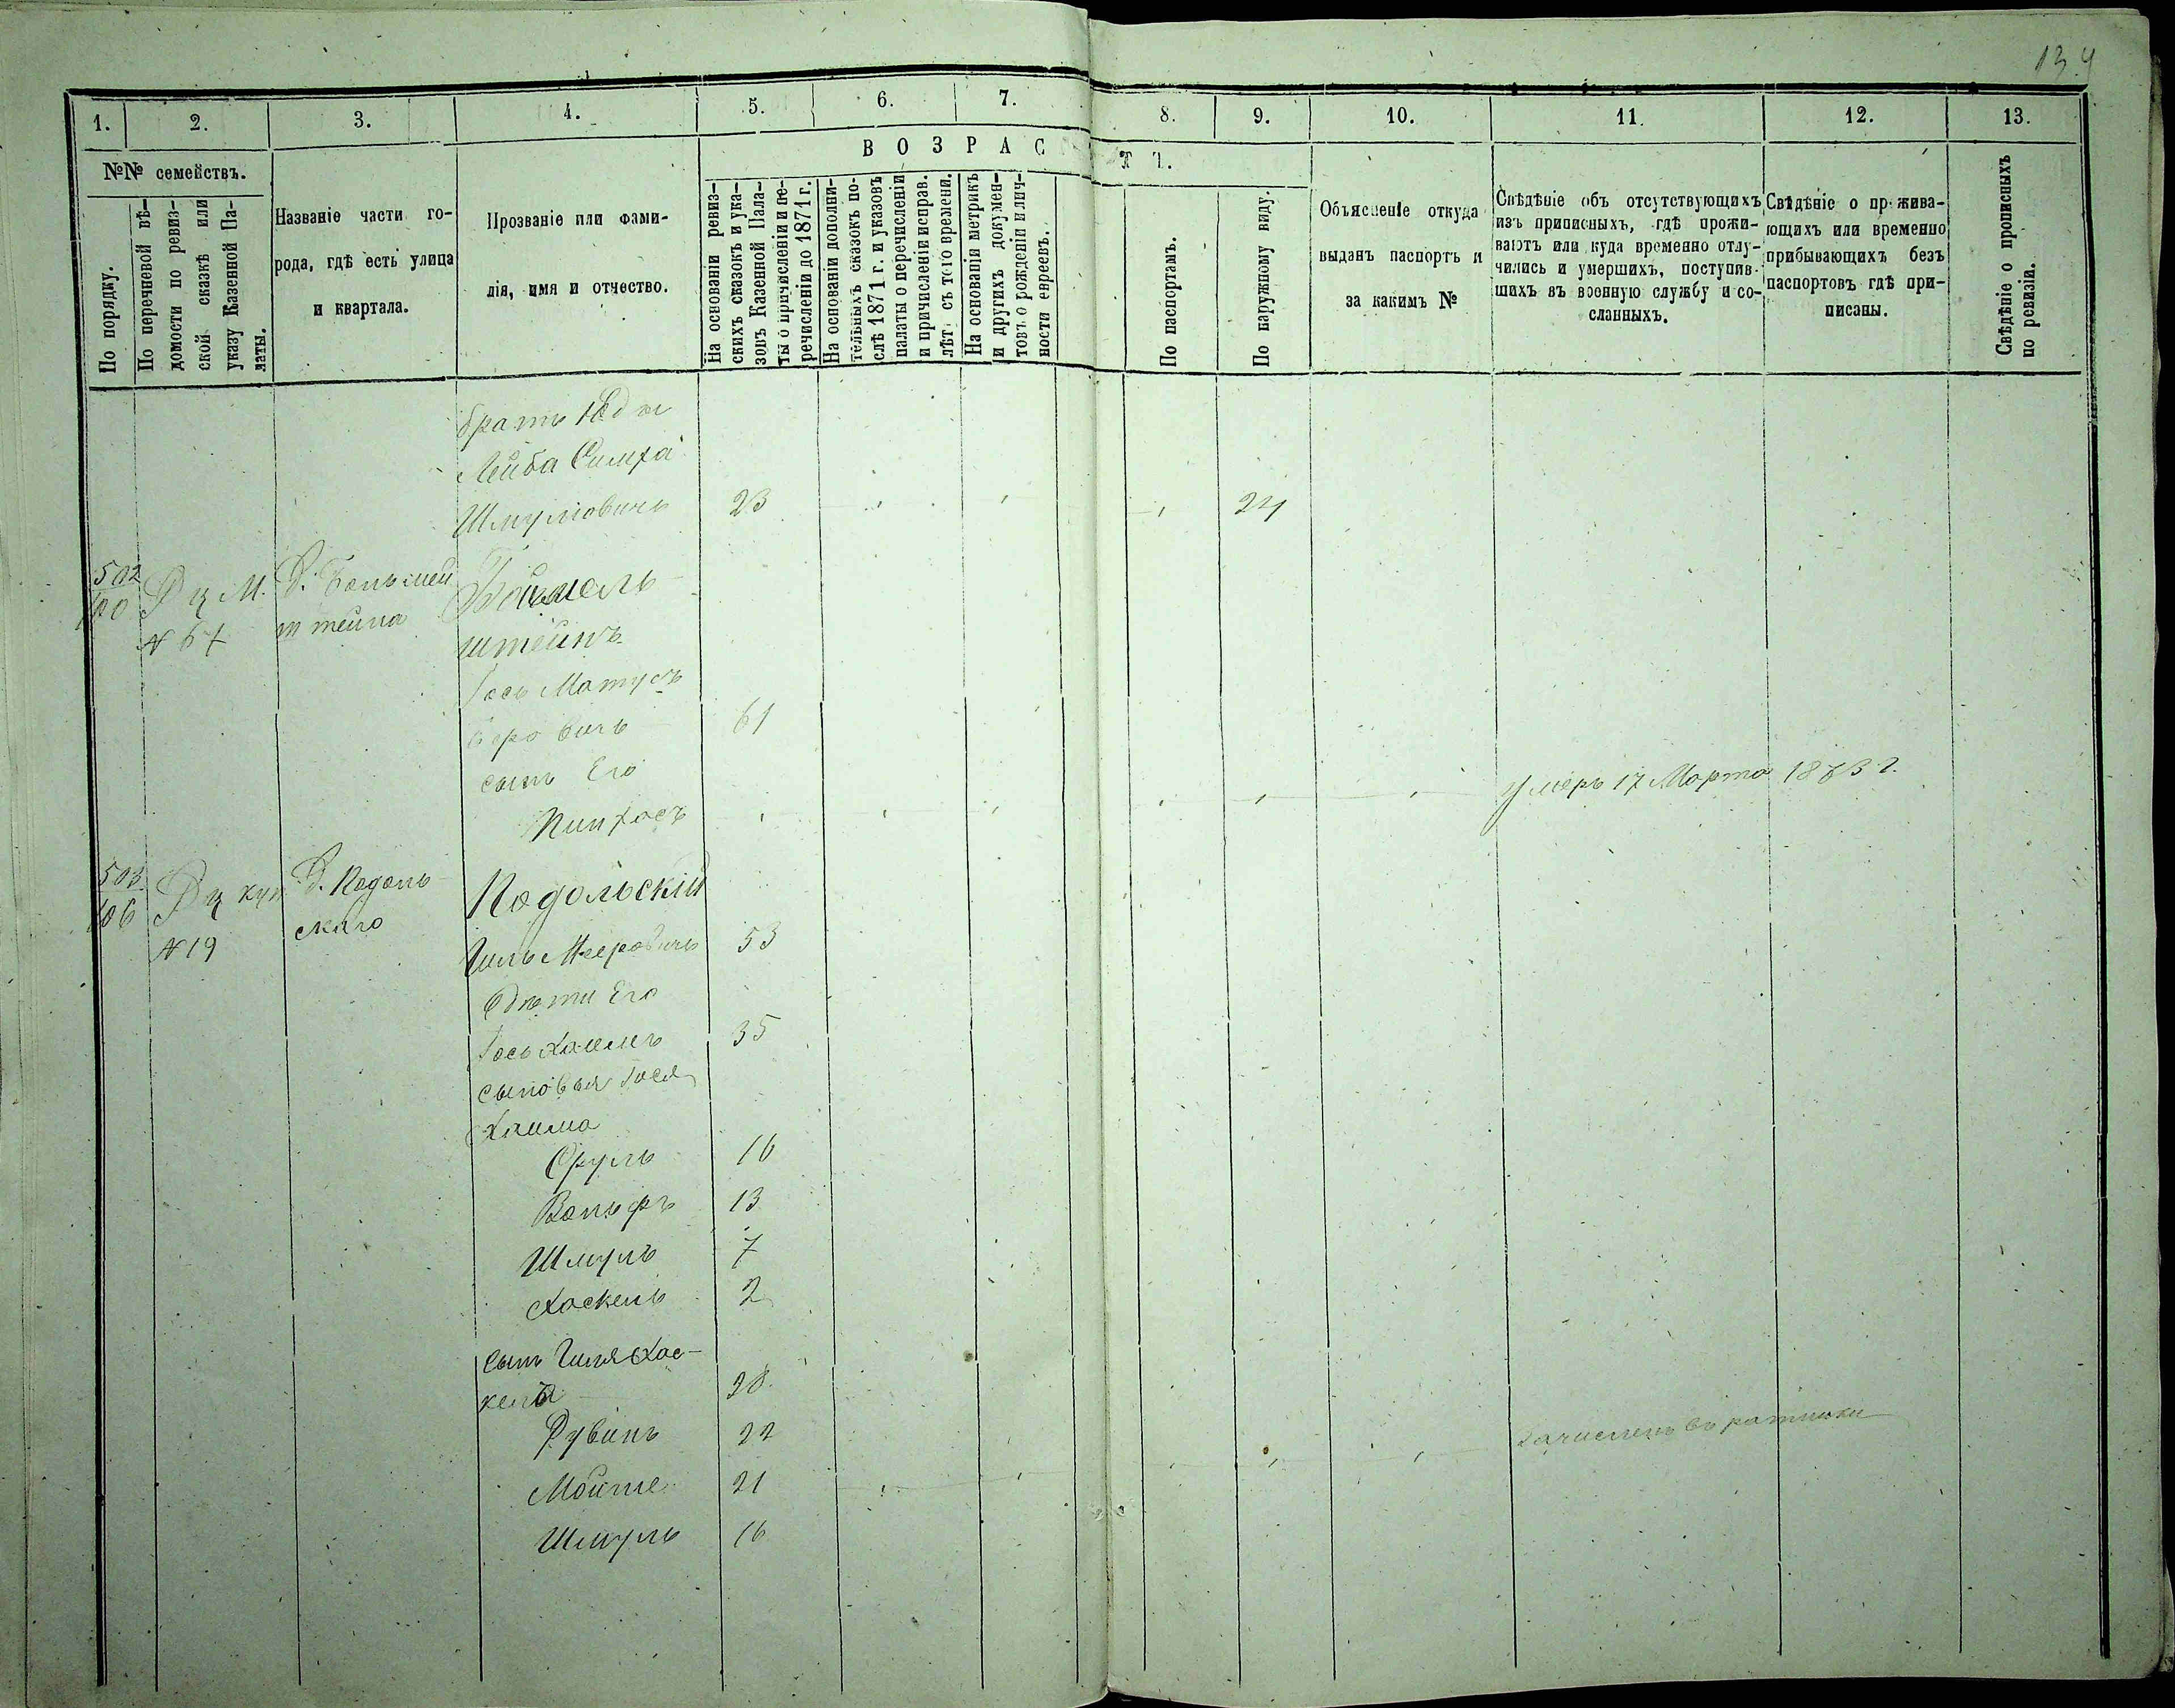 13.4
1. 2. 3. 4. 5. 6. 7. 8. 9. 10. 11. 12. 13.
№№ семействъ.
По порядку.
По перечневой вѣ-
домости по ревиз-
ской сказкѣ или
указу Казенной Па-
латы.
Названіе части го-
рода, гдѣ есть улица
и квартала.
Прозваніе или фами-
лія, имя и отчество.
ВОЗРАСТЪ.
На основаніи ревиз-
скихъ сказокъ и ука-
зовъ Казенной Пала-
ты о причисленіи и пе-
речисленіи до 1871 г.
На основаніи дополни-
тельныхъ сказокъ по-
слѣ 1871 г. и указовъ
палаты о перечисленіи
и причисленіи исправ.
лѣт. съ того времени.
На основаніи метрикъ
и другихъ докумен-
товъ о рожденіи и лич-
ности евреевъ.
По паспортамъ.
По наружному виду.
Объясненіе откуда
выданъ паспортъ и
за какимъ №
Свѣдѣніе объ отсутствующихъ
изъ приписныхъ, гдѣ прожи-
ваютъ или куда временно отлу-
чились и умершихъ, поступив-
шихъ въ военную службу и со-
сланныхъ.
Свѣдѣніе о прожива-
ющихъ или временно
прибывающихъ безъ
паспортовъ гдѣ при-
писаны.
Свѣдѣніе о прописныхъ
по ревизіи.
братъ
Лейба Симха
Шмулiовичъ 23 24
502 Рц М. Д.
100 № 67 штейна
штейнъ
Іось Матусъ
Беровичъ 61
сынъ Его
Пинхосъ Умеръ 17 Марта 1873 г.
503 Рц куп Д. Подоль- Подольскій
106 № 19 скаго
Гиль Мееровичъ 53
Дѣти Его
Іось Хаимъ 35
сыновья Іося
Хаима
Сруль 16
Вольфъ 13
Шмуль 7
Хаскель 2
сынъ Гиля Хас-
кель 28
Рувинъ 22
Мойше 21 зачисленъ въ ратники
Шмуль 16